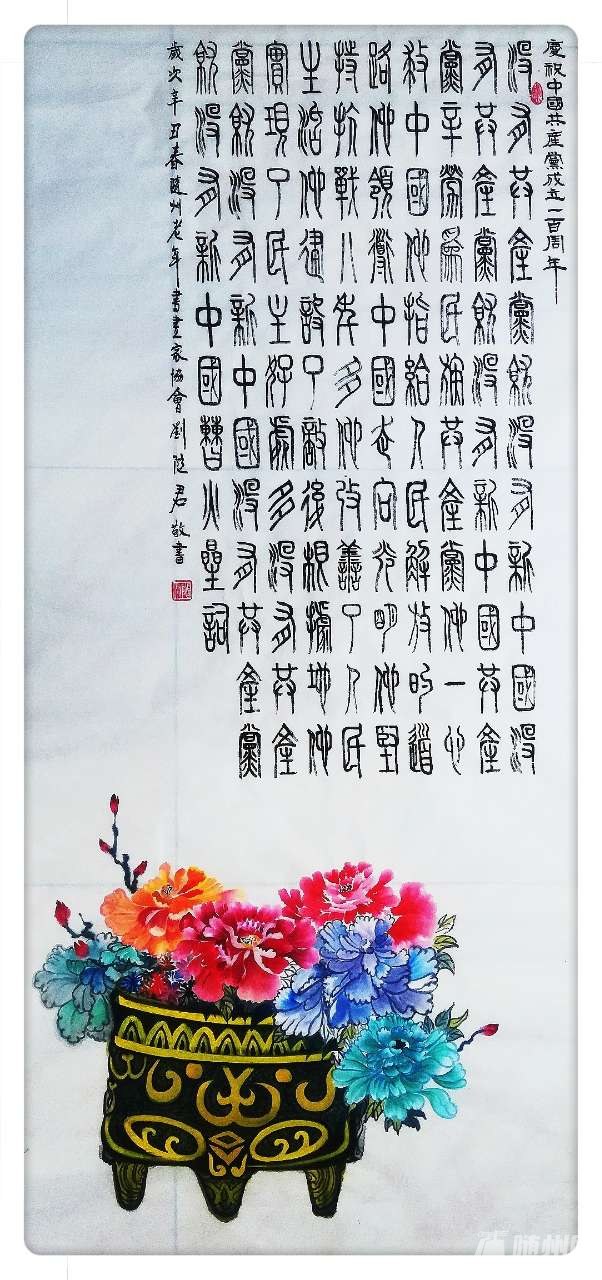 慶祝中國共産黨成立一百周年
沒有共產黨就沒有新中國沒
有共產黨就沒有新中國共產
黨辛勞爲民族共產黨他一心
救中國他指給人民解放的道
路他領導中國走向光明他堅
持抗戰八年多他改善了人民
生活他建設了敵後根據地他
實現了民主好處多沒有共產
黨就沒有新中國沒有共產黨
就沒有新中國曹火星詞
歲次辛丑春隨州老年書畫家協會劉君敬書
随州